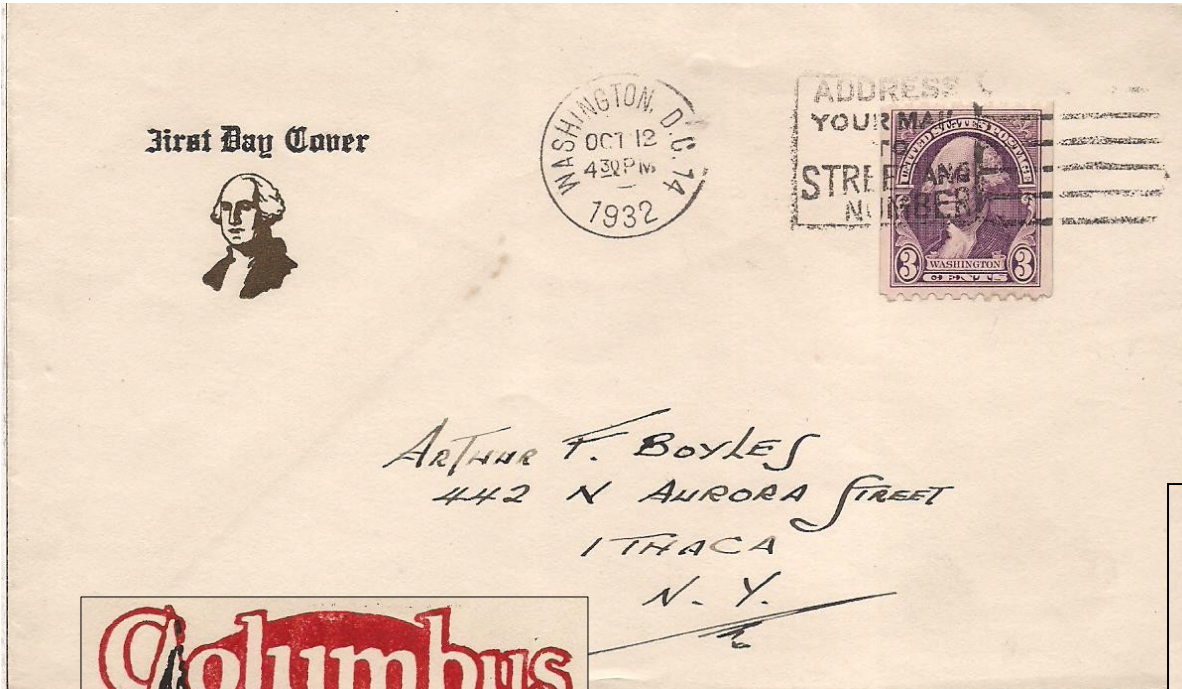 First Day Cover
WASHINGTON, D.C. 14
OCT 12
4 30 PM
1932
ADDRESS
YOUR MAIL
TO
STREET AND
NUMBER
UNITED STATES POSTAGE
3 WASHINGTON 3
CENTS
ARTHUR F. BOYLES
442 N AURORA STREET
ITHACA
N. Y.
Columbus